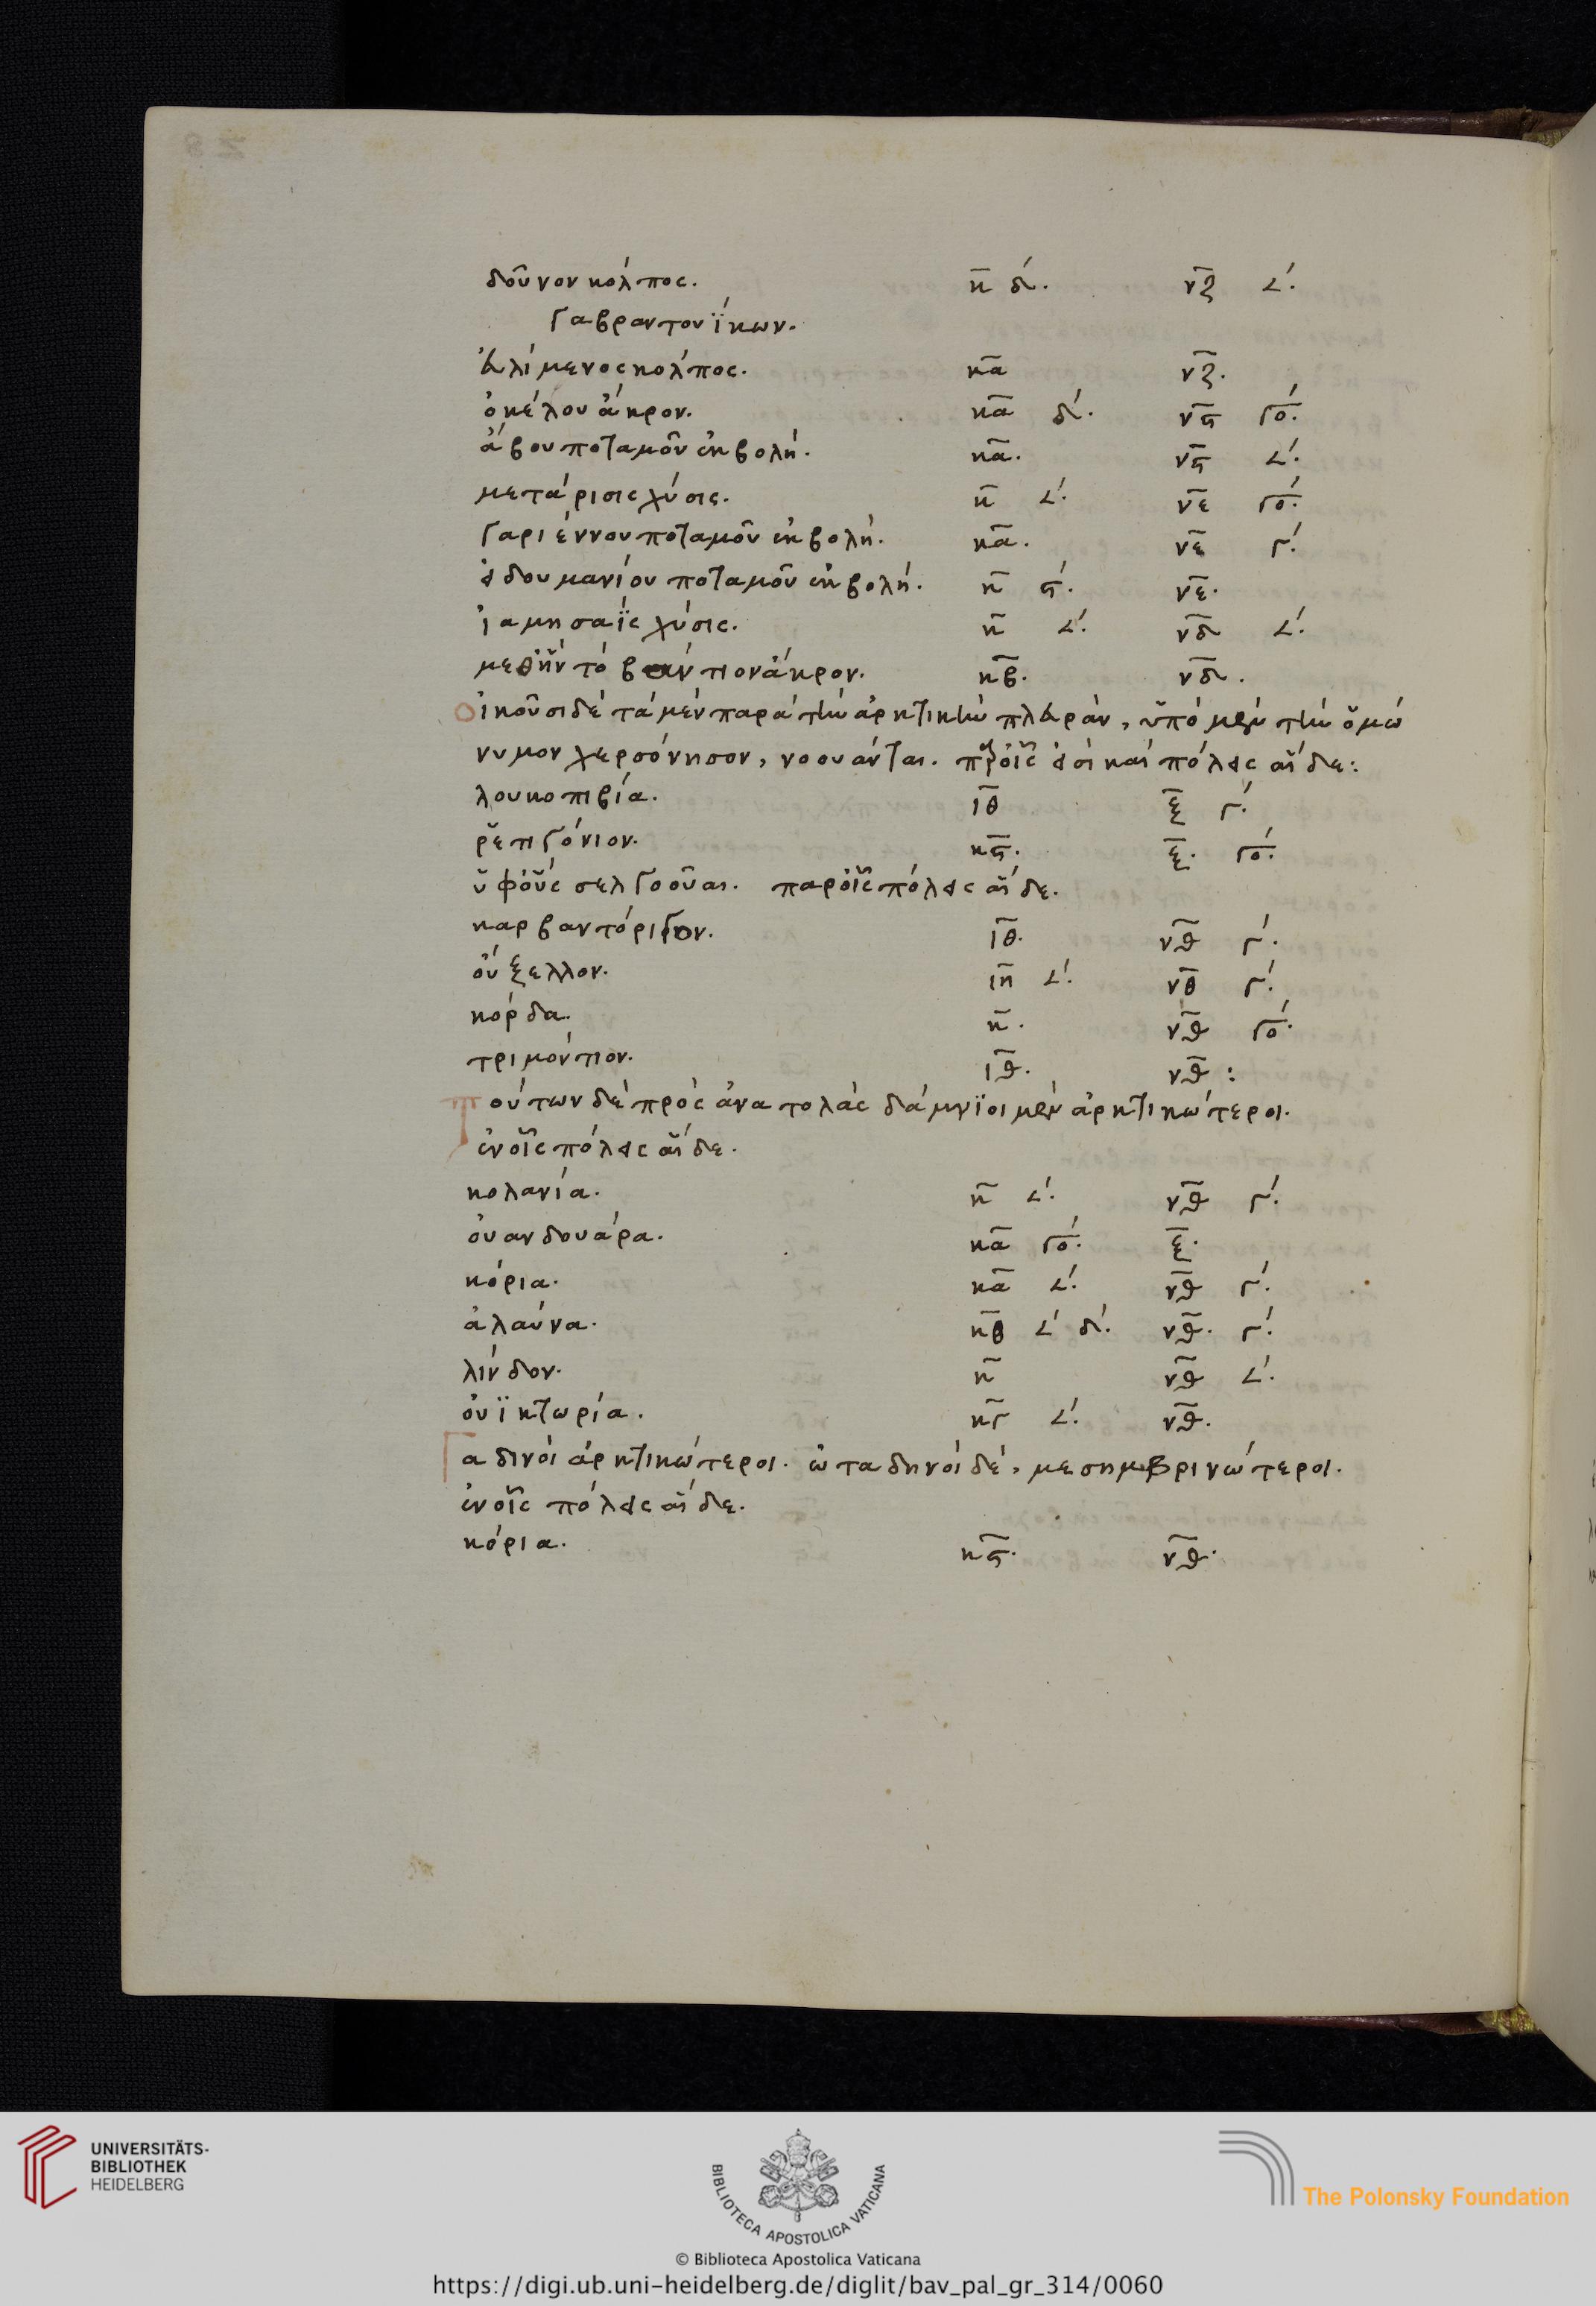 δοῦνον κόλπος. κ̅ δ΄. ν̅ζ̅ 𐅵΄.
Γαβραντονΐκων.
εὐλίμενος κόλπος. κ̅α̅ ν̅ζ̅.
ὀκέλου ἄκρον. κ̅α̅ δ΄. ν̅ϛ̅ γο΄.
ἄβου ποταμοῦ ἐκβολή. κ̅α̅. ν̅ϛ̅ 𐅵΄.
μετάρισις χύσις. κ̅ 𐅵΄. ν̅ε̅ γο΄.
Γαριέννου ποταμοῦ ἐκβολή. κ̅α̅. ν̅ε̅ γ΄.
εἰδουμανίου ποταμοῦ ἐκβολή. κ̅ ϛ΄. ν̅ε̅.
ἰαμησαῒς χύσις. κ̅ 𐅵΄. ν̅δ̅ 𐅵΄.
μεθ' ἣν τὸ ἄκρον. κ̅β̅. ν̅δ̅.
Οἰκοῦσι δὲ τὰ μὲν παρὰ τὴν ἀρκτικὴν πλευρὰν, ὑπὸ μὲν τὴν ὁμώ
νυμον χερσόνησον, νοουάνται. παρ' οἷς εἰσὶ καὶ πόλεις αἵδε:
λουκοπιβία. ι̅θ̅ ξ̅ γ΄.
ῥεπιγόνιον. κ̅ϛ̅. ξ̅. γο΄.
ὑφ' οὓς σελγοοῦαι. παρ' οἷς πόλεις αἵδε.
καρβαντόριγον. ι̅θ̅. ν̅θ̅ γ΄.
οὔξελλον. ι̅η̅ 𐅵΄. ν̅θ̅ γ΄.
κόρδα. κ̅. ν̅θ̅ γο΄.
τριμόντιον. ι̅θ̅. ν̅θ̅:
Τούτων δὲ πρὸς ἀνατολὰς δάμνϊοι μὲν ἀρκτικώτεροι.
ἐν οἷς πόλεις αἵδε.
κολανία. κ̅ 𐅵΄. ν̅θ̅ γ΄.
οὐανδουάρα. κ̅α̅ γο΄. ξ̅.
κόρια. κ̅α̅ 𐅵΄. ν̅θ̅ γ΄.
ἀλαύνα. κ̅θ̅ 𐅵΄ δ΄. ν̅θ̅. γ΄.
λίνδον. κ̅ ν̅θ̅ 𐅵΄.
οὐϊκτωρία. κ̅γ̅ 𐅵΄. ν̅θ̅.
Γαδινοὶ ἀρκτικώτεροι. ὠταδηνοὶ δὲ, μεσημβρινώτεροι.
ἐν οἷς πόλεις αἵδε.
κόρια. κ̅ϛ̅. ν̅θ̅.
UNIVERSITÄTS-
BIBLIOTHEK
HEIDELBERG
BIBLIOTECA APOSTOLICA VATICANA
The Polonsky Foundation
© Biblioteca Apostolica Vaticana
https://digi.ub.uni-heidelberg.de/diglit/bav_pal_gr_314/0060